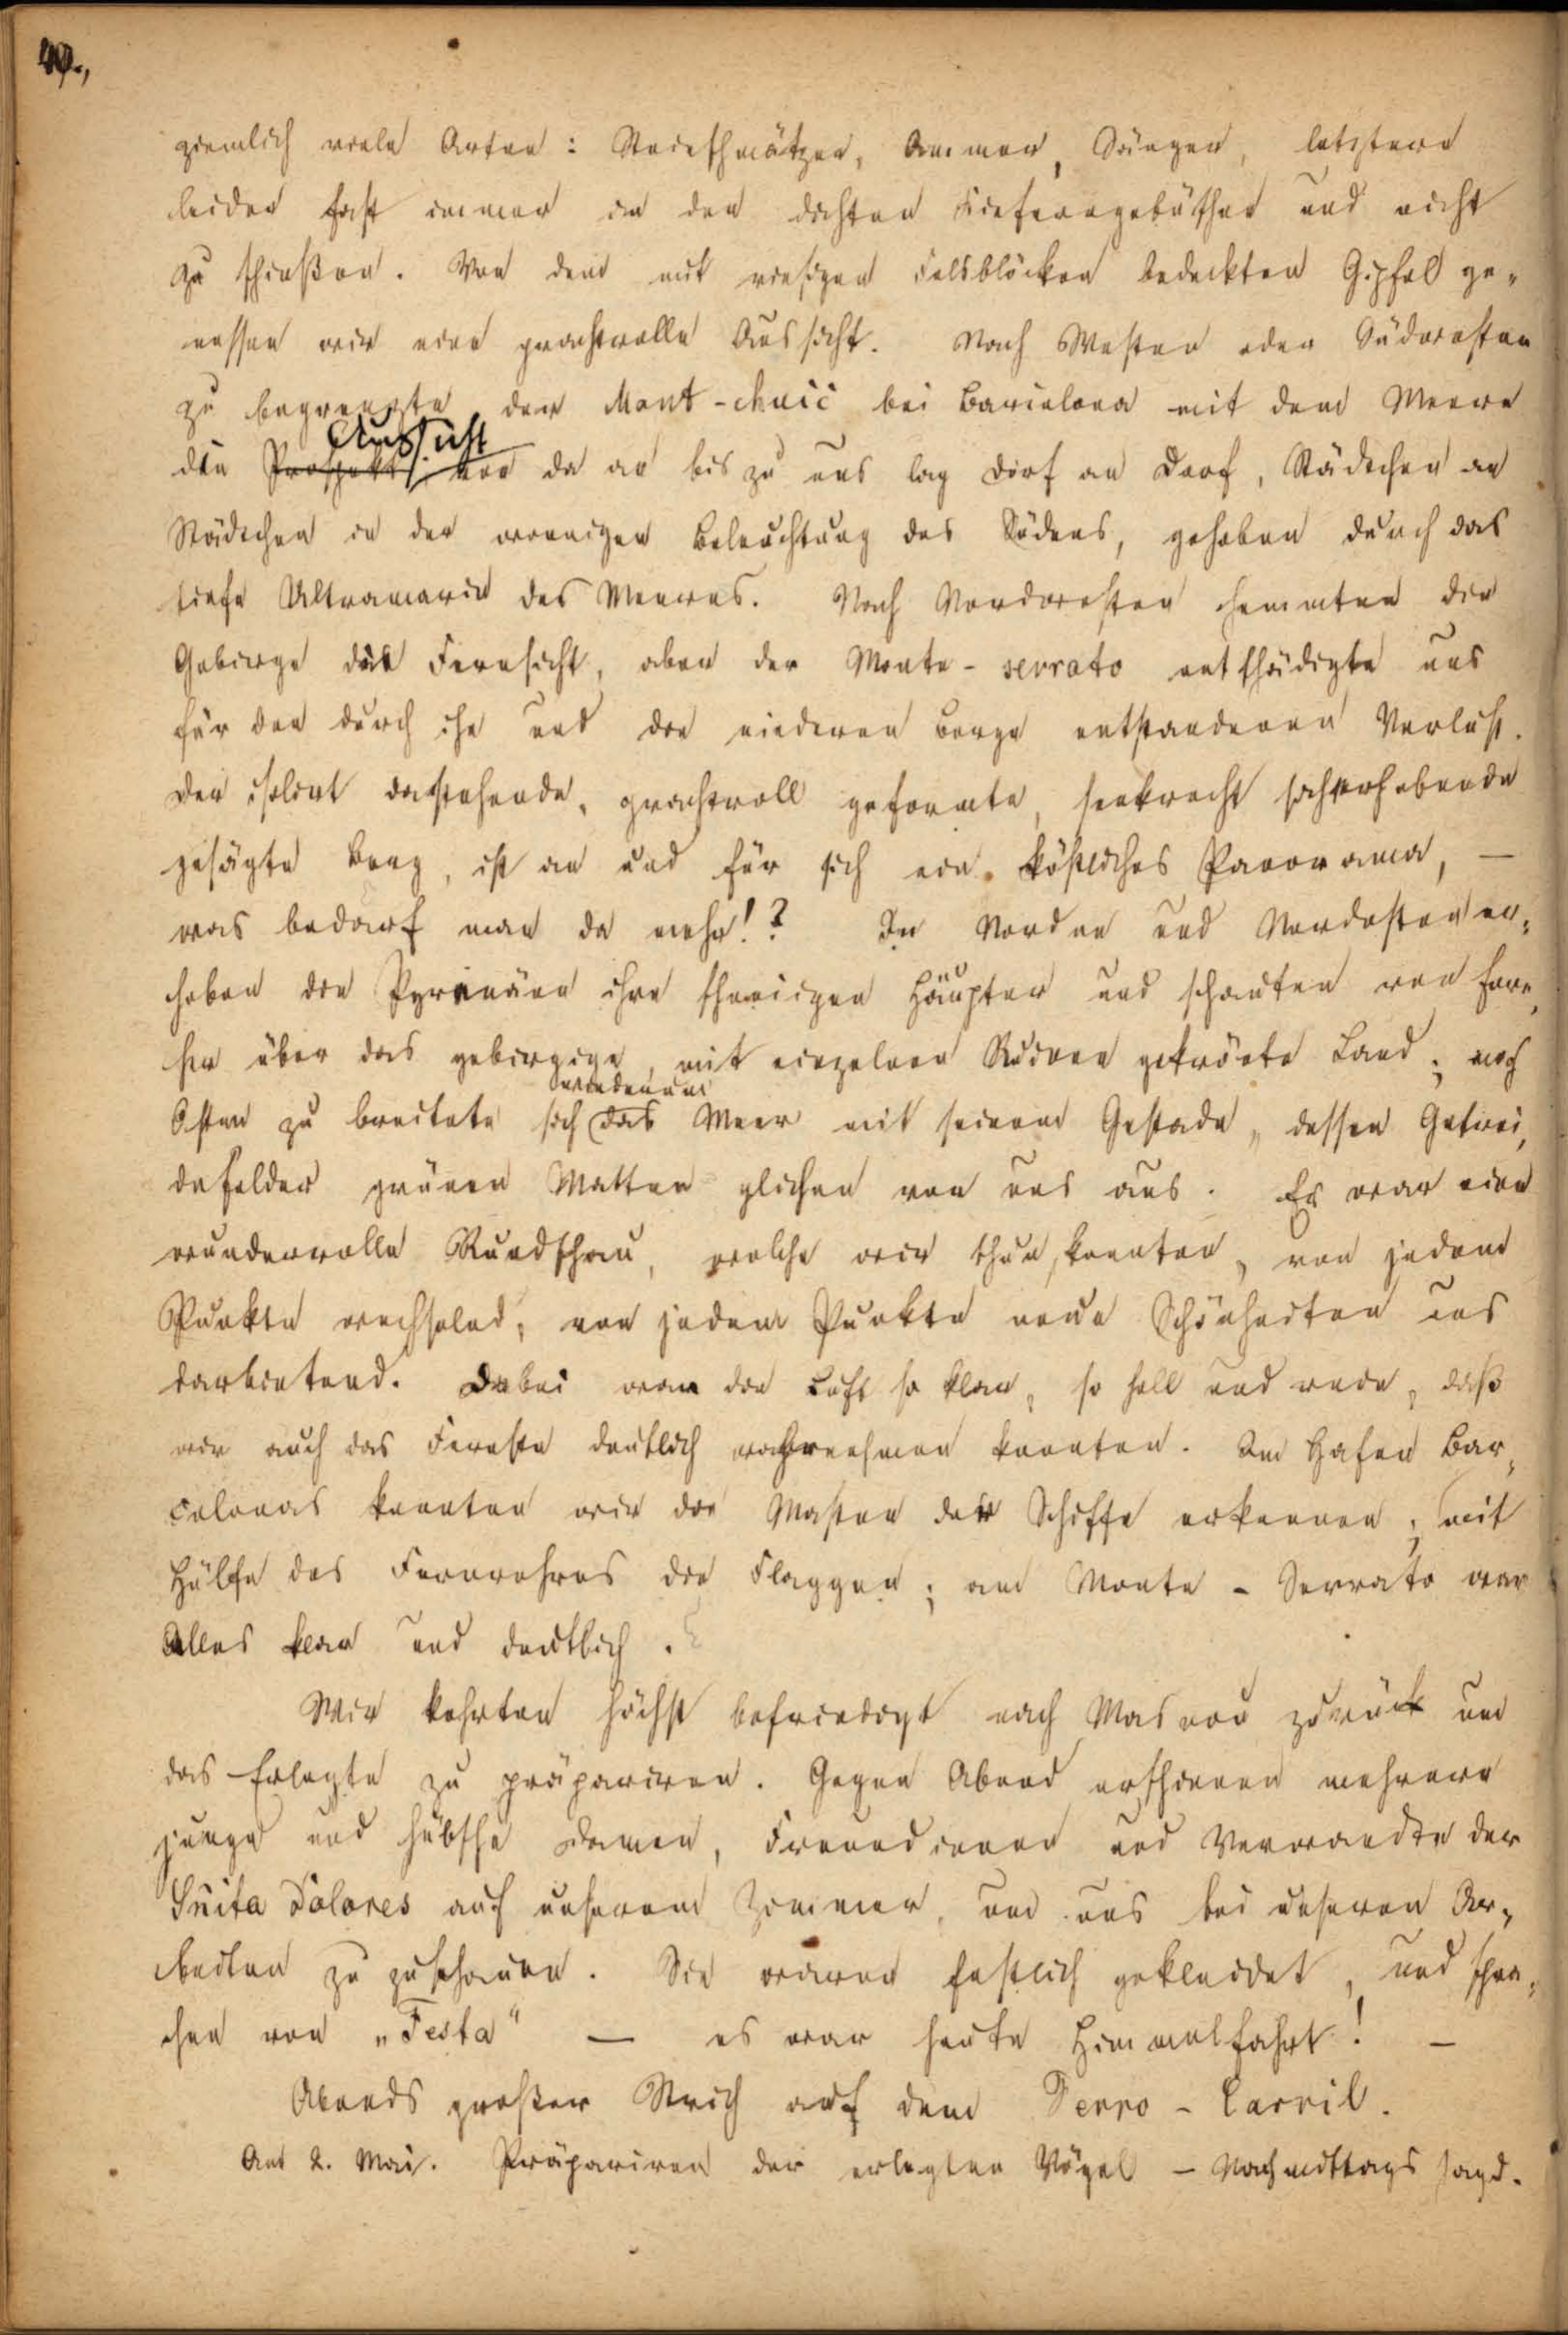 40.,
ziemlich viele Arten: Steinschmätzer, Ammer, Sänger, letztere
leider fast immer in den dichten Kieferngebüschen und nicht
zu schießen. Von dem mit riesigen Felsblöcken bedeckten Gipfel ge-
nossen wir eine prachtvolle Aussicht. Nach Westen oder Südwesten
zu begrenzte der Mont-chuic bei Barcelona mit dem Meere
die Prospekt, Aussicht von da an bis zu uns lag Dorf an Dorf, Städtchen an
Städtchen in der sonnigen Beleuchtung des Südens, gehoben durch das
tiefe Ultramarin des Meeres. Nach Nordwesten hemmten die
Gebirge die Fernsicht, aber der Monte-serrato entschädigte uns
für den durch ihn und die niederen Berge entstandenen Verlust.
Der isolirt dastehende, prachtvoll geformte, senkrecht sich erhebende
gesägte Berg, ist an und für sich ein köstliches Panorama, —
was bedarf man da mehr!? Im Norden und Nordosten er-
hoben die Pyrenäen ihre schneeigen Häupter und schauten von fern
her über das gebirgige, mit einzelnen Ruinen gekrönte Land; nach
Osten zu breitete sich wiederum das Meer mit seinem Gestade, dessen Getrei-
defelder grünen Matten glichen von uns aus. Es war eine
wundervolle Rundschau, welche wir thun konnten, von jedem
Punkte wechselnd, von jedem Punkte neue Schönheiten uns
darbietend. Dabei war die Luft so klar, so hell und rein, daß
wir auch das Fernste deutlich wahrnehmen konnten. Im Hafen Bar-
celonas konnten wir die Masten der Schiffe erkennen, mit
Hülfe des Fernrohres die Flaggen; am Monte-Serrato war
Alles klar und deutlich.
Wir kehrten höchst befriedigt nach Masnou zurück um
das Erlegte zu präpariren. Gegen Abend erschienen mehrere
junge und hübsche Damen, Freundinnen und Verwandte der
Sñita Dolores auf unserem Zimmer, um uns bei unseren Ar-
beiten zu zuschauen. Sie waren festlich gekleidet, und spra-
chen von „Festa“ — es war heute Himmelfahrt! —
Abends großer Strich auf dem Ferro-Carril.
Am 2. Mai. Präpariren der erlegten Vögel – Nachmittags Jagd.